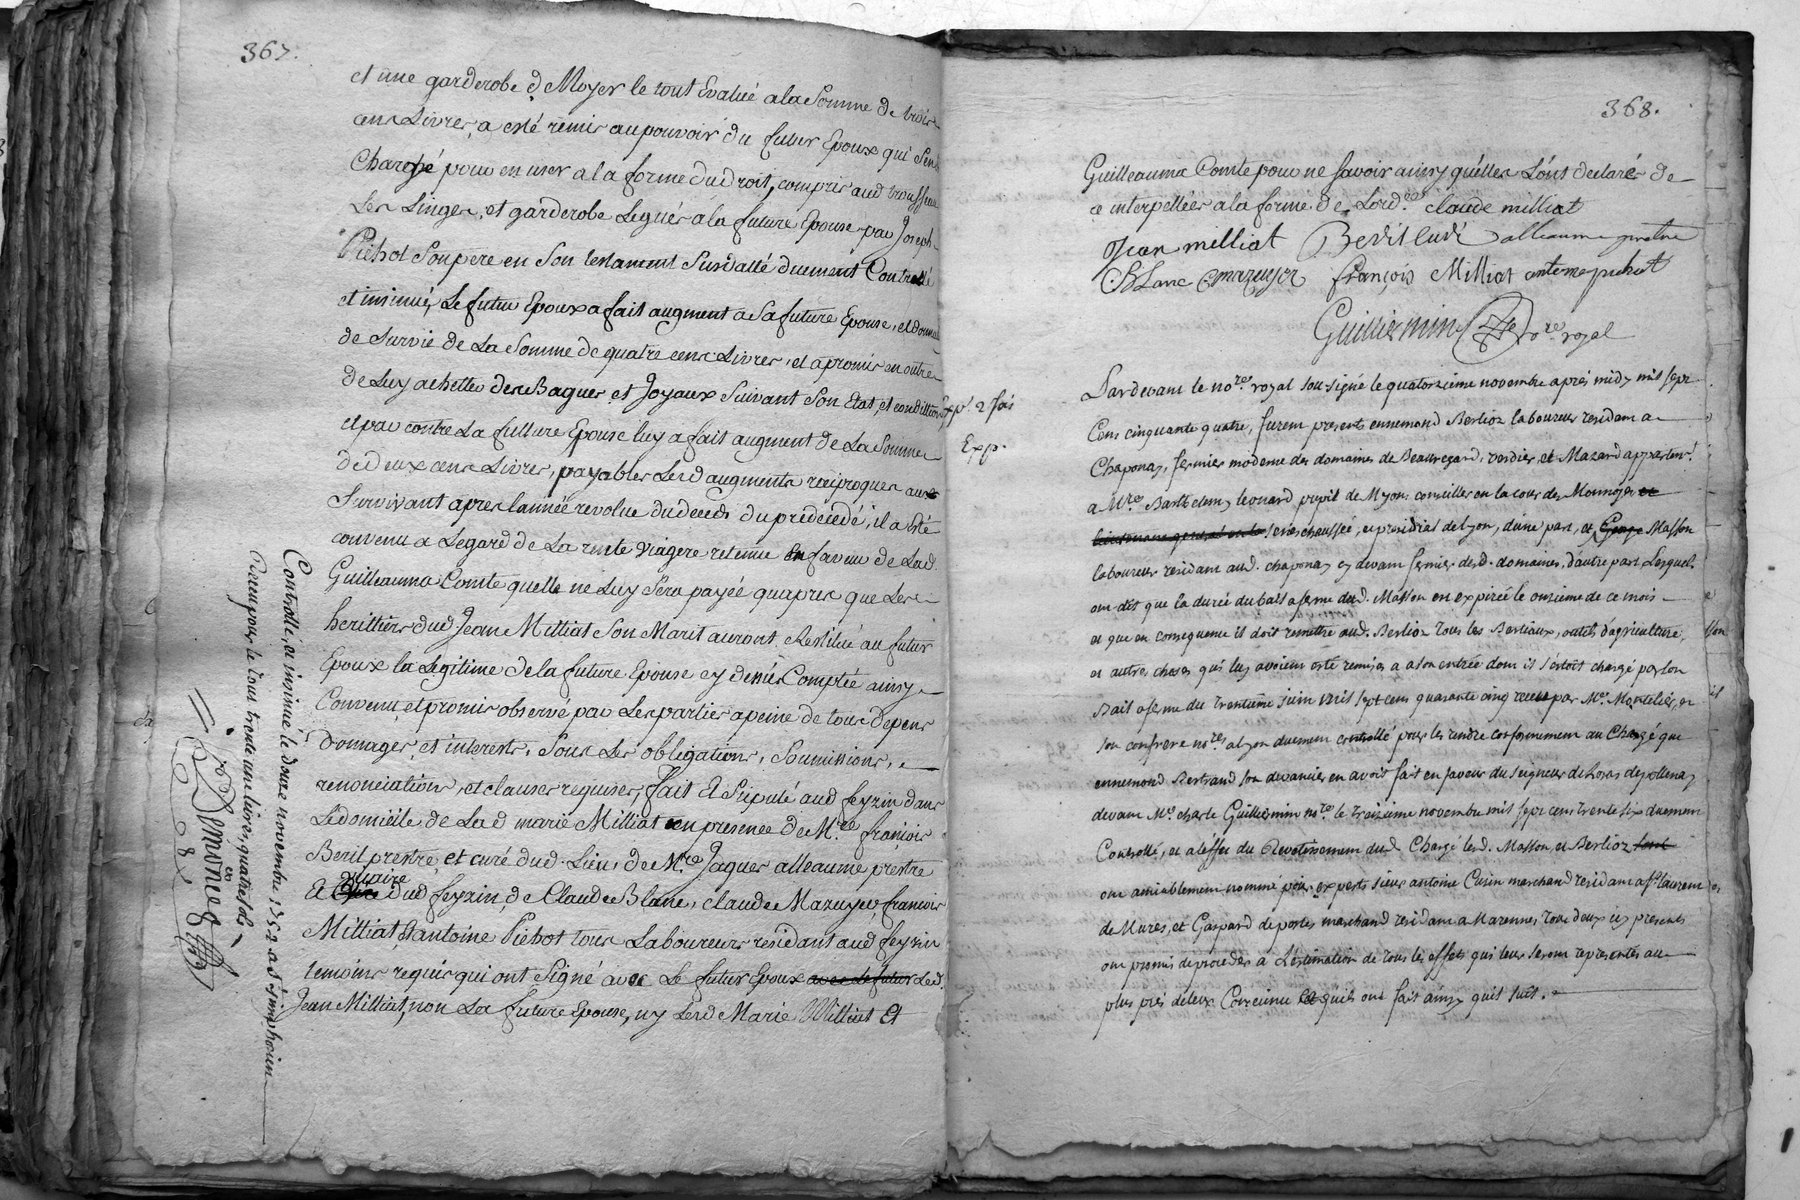 367.
et une garderobe de Noyer le tout Evalué a la Somme de trois
cens Livres, a esté remis au pouvoir du futur Epoux qui s'en est
Chargé pour en user a la forme du droit, compris aud trousseau
Les Linges, et garderobe Legués a la future Epouse par Joseph
Pichot Son pere en Son testament Susdatté duement Controllé
et insinué, Le futur Epoux a fait augment a Sa future Epouse, et donné
de Survie de La Somme de quatre cens Livres, et a promis en outre
de Luy achetter des Bagues et Joyaux Suivant Son Etat, et condition
et par contre La future Epouse luy a fait augment de La Somme
de deux cens Livres, payables Lesd augments reciproques au
Survivant apres l'année revolue du deceds du prédécédé, il a esté
convenu a Legard de La rente viagere retenue En faveur de Lad.
Guilleauma Comte quelle ne Luy Sera payée quapres que Les
heritiers dud Jean Milliat Son Marit auront Restitué au futur
Epoux la Legitime de la future Epouse cy denié Comptée ainsy
Convenu, et promis observé par Les parties a peine de tous depens
Domages, et interests, Sous Les obligations, Soumissions,
renonciations, et clauses requises, fait Et Stipulé aud feyzin dans
Le domicile de Lad marie Milliat en presence de Mre françois
Beril prestre, et curé dud. Lieu, de Mre Jaques alleaume prestre
Et vicaire dud feyzin, de Claude Blanc, claude Mazuyer, francois
Milliat, & antoine Pichot tous Laboureurs residant aud feyzin
temoins requis qui ont Signé avec Le futur Epoux avec le futur Led.
Jean Milliat, non La future Epouse, ny Lesd Marie Milliat Et
Controllé, et insinué le douze novembre 1752 a St simphorien
Receu pour le tout trente une livres, quatre sols
Exp. 2 fois
Exp.
368.
Guilleauma Comte pour ne savoir ainsy quelles L'ont declaré de
ce interpellées a la forme de Lord.ce claude milliat
Jean milliat Beril curé alleaume prestre
C Blanc C mazuyer françois Milliat antoine pichot
Guilliermin no.re royal
Pardevant le no.re royal sousigné le quatorzieme novembre après midy mil sept
Cens cinquante quatre, furent presents ennemond Berlioz laboureur residant a
Chaponay, fermier moderne des domaines de Beauregard, verdier, et Mazard appartent.
a Mre Barthelemy leonard pupil de Myons conseiller en la cour des Monnoyes et
senechaussée, et presidial de lyon, d'une part, et George Masson
laboureur residant aud. chaponay cy devant fermier desd. domaines, d'autre part. Lesquels
ont dit que la durée du bail a ferme dud. Masson en expirée le onzieme de ce mois
et que en consequence il doit remettre aud. Berlioz tous les Bestiaux, outils d'agriculture,
et autres choses qui luy avoient esté remises a son entrée dont il s'estoit chargé par son
Bail a ferme du trentieme juin mil sept cens quarante cinq receu par Me. Montelier, et
son confrere no.res a lyon duement controllé pour les rendre conformement au Chargé que
ennemond Bertrand son devancier en avoit fait en faveur du seigneur de Loras de pollena
devant Me. charle Guilliermin no.re le treizieme novembre mil sept cens trente six duement
Controllé, et a l'effet du Revetissement dud Chargé lesd. Masson, et Berlioz
ont amiablement nommé pour experts sieur antoine Cusin marchand residant a St. laurent
de Mures, et Gaspard deportes marchand residant a Marennes, tous deux icy presents
ont promis de proceder a L'estimation de tous les effets qui leur seront representés au
plus pres de leur Conscience ce quils ont fait ainsy quil suit.